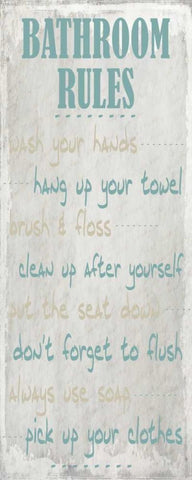 BATHROOM
RULES
wash your hands
hang up your towel
brush & floss
clean up after yourself
put the seat down
don't forget to flush
always use soap
pick up your clothes